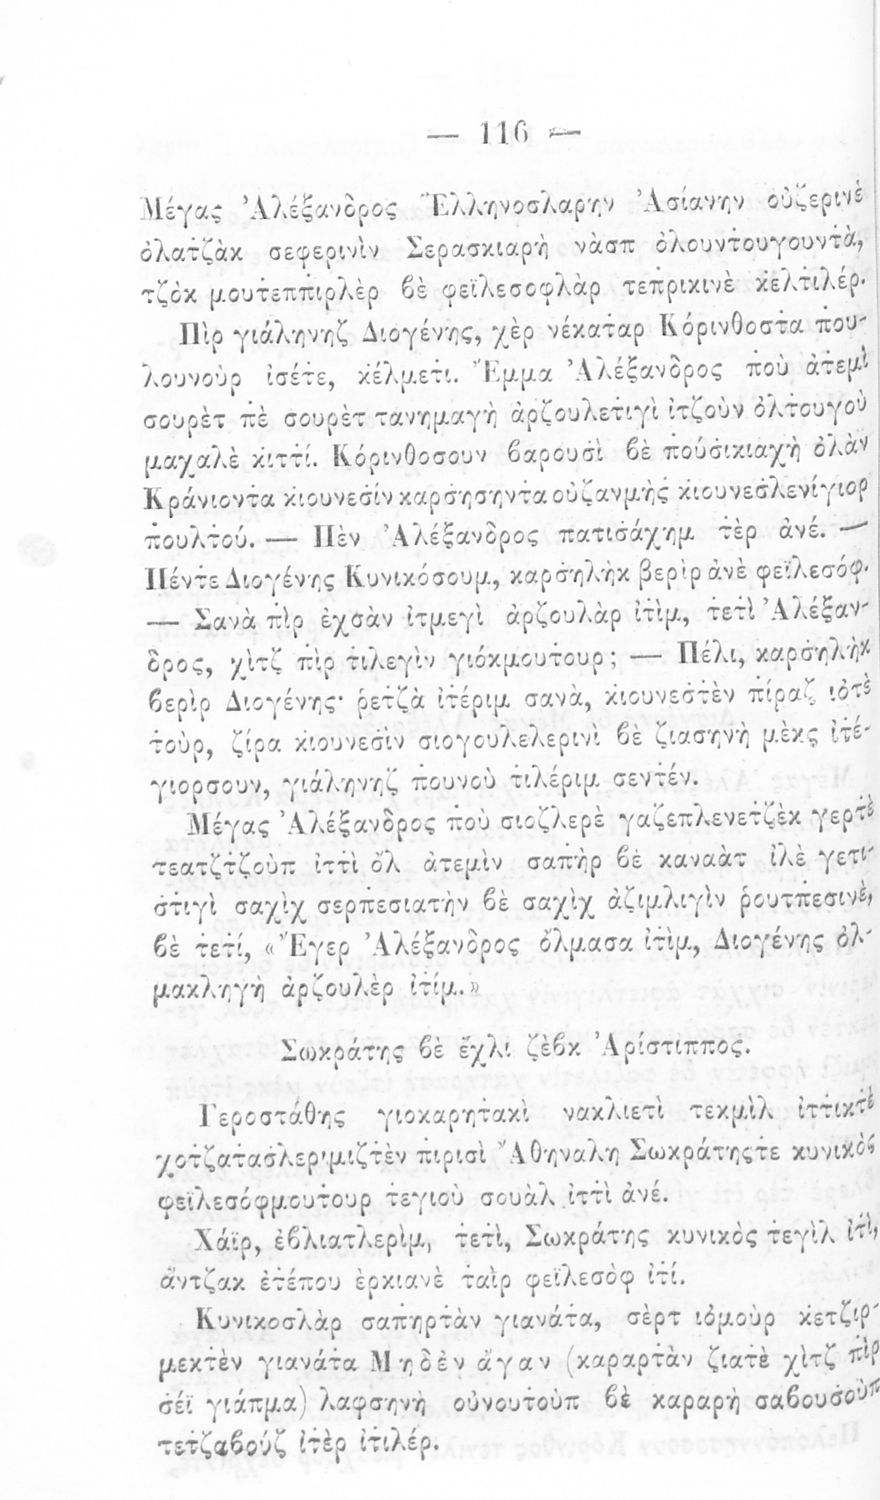 — 116 —
Μέγας Ἀλέξανδρος Ἕλληνοσλαρην Ἀσίανην οὐζερινὲ
ὀλατζὰκ σεφερινὶν Σερασκιαρὴ νὰσπ ὀλουντουγουντὰ,
τζὸκ μουτεππιρλὲρ βὲ φεϊλεσοφλὰρ τεπρικινὲ κελτιλέρ.
Πὶρ γιάληνηζ Διογένης, χὲρ νέκαταρ Κόρινθοστα που-
λουνοὺρ ἰσέτε, κέλμετι. Ἔμμα Ἀλέξανδρος ποὺ ἀτεμὶ
σουρὲτ πὲ σουρὲτ τανημαγὴ ἀρζουλετιγὶ ἰτζοὺν ὀλτουγοὺ
μαχαλὲ κιττί. Κόρινθοσουν βαρουσὶ βὲ ποὺσικιαχὴ ὀλὰν
Κράνιοντα κιουνεσὶν καρσησηντα οὐζανμὴς κιουνεσλενίγιορ
πουλτού. — Πὲν Ἀλέξανδρος πατισάχημ τὲρ ἀνέ. —
Πέντε Διογένης Κυνικόσουμ, καρσηλὴκ βερὶρ ἀνὲ φεϊλεσόφ.
— Σανὰ πὶρ ἐχσὰν ἰτμεγὶ ἀρζουλὰρ ἰτὶμ, τετὶ Ἀλέξαν-
δρος, χὶτζ πὶρ τιλεγὶν γιόκμουτουρ; — Πέλι, καρσηλὴκ
βερὶρ Διογένης· ῥετζὰ ἰτέριμ σανὰ, κιουνεστὲν πίραζ ἰὀτὲ
τοὺρ, ζίρα κιουνεσὶν σιογουλελερινὶ βὲ ζιασηνὴ μὲκς ἰτέ-
γιορσουν, γιάληνηζ πουνοὺ τιλέριμ σεντέν.
Μέγας Ἀλέξανδρος ποὺ σιοζλερὲ γαζεπλενετζὲκ γερτὲ
τεατζτζοὺπ ἰττὶ ὂλ ἀτεμὶν σαπὴρ βὲ καναὰτ ἰλὲ γετι-
στιγὶ σαχὶχ σερπεσιατὴν βὲ σαχὶχ ἀζιμλιγὶν ῥουτπεσινὲ,
βὲ τετί, «Ἔγερ Ἀλέξανδρος ὄλμασα ἰτὶμ, Διογένης ὀλ-
μακληγὴ ἀρζουλὲρ ἰτίμ.»
Σωκράτης βὲ ἔχλι ζὲβκ Ἀρίστιππος.
Γεροστάθης γιοκαρητακὶ νακλιετὶ τεκμὶλ ἰττικτὲ
χοτζατασλεριμιζτὲν πιρισὶ Ἀθηναλη Σωκράτηςτε κυνικὸς
φεϊλεσόφμουτουρ τεγιοὺ σουὰλ ἰττὶ ἀνέ.
Χάϊρ, ἐβλιατλερὶμ, τετὶ, Σωκράτης κυνικὸς τεγὶλ ἰτὶ,
ἄντζακ ἐτέπου ἐρκιανὲ ταὶρ φεϊλεσὸφ ἰτί.
Κυνικοσλὰρ σαπηρτὰν γιανάτα, σὲρτ ἰὀμοὺρ κετζιρ-
μεκτὲν γιανάτα Μηδὲν ἄγαν (καραρτὰν ζιατὲ χὶτζ πὶρ
σέϊ γιάπμα) λαφσηνὴ οὐνουτοὺπ βὲ καραρὴ σαβουσοὺπ
τετζαβοὺζ ἰτὲρ ἰτιλέρ.